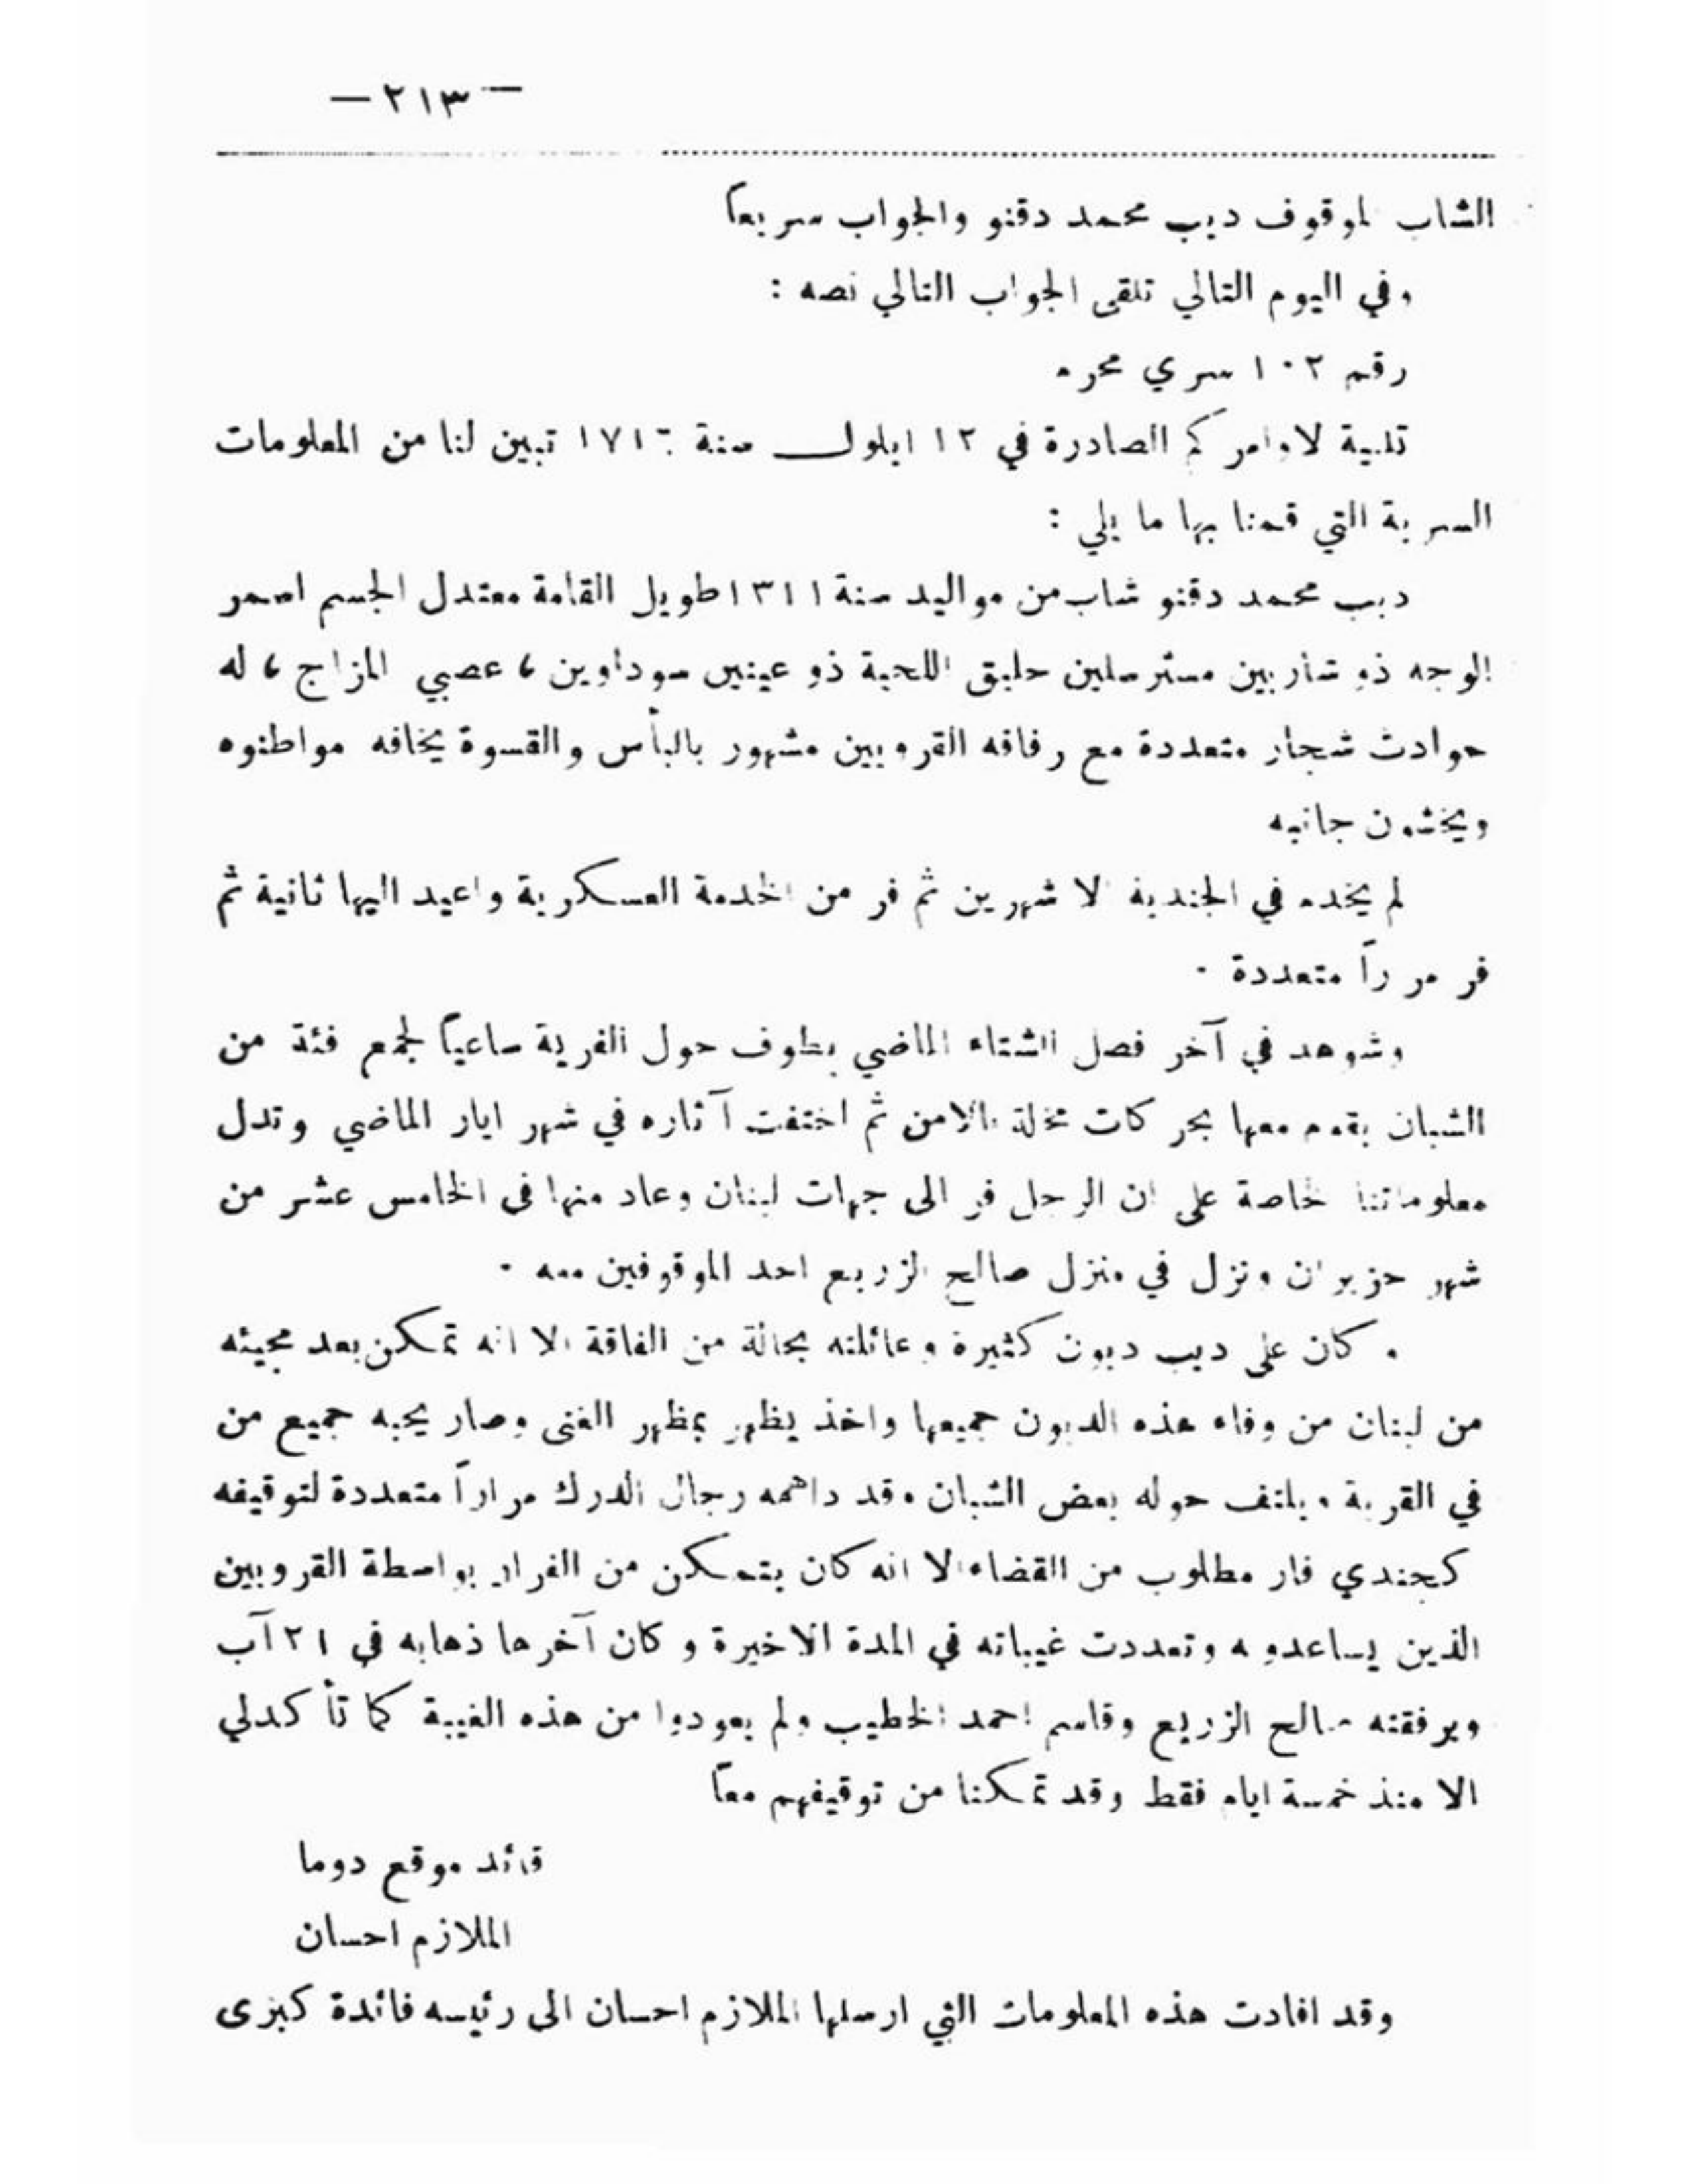 — ٢١٣ —
الشاب الموقوف ديب محمد دقنو والجواب سريعاً
وفي اليوم التالي تلقى الجواب التالي نصه :
رقم ١٠٢ سري محرم
تلبية لاوامركم الصادرة في ١٢ ايلول سنة تبين لنا من المعلومات
السرية التي قمنا بها ما يلي :
ديب محمد دقنو شاب من مواليد سنة ١٣١١ طويل القامة معتدل الجسم اسمر
الوجه ذو شاربين مسترسلين حليق اللحية ذو عينين سوداوين ، عصبي المزاج ، له
حوادث شجار متعددة مع رفاقه القرويين مشهور بالبأس والقسوة يخافه مواطنوه
ويخشون جانبه
لم يخدم في الجندية الا شهرين ثم فر من الخدمة العسكرية واعيد اليها ثانية ثم
فر مراراً متعددة .
وشوهد في آخر فصل الشتاء الماضي يطوف حول القرية ساعياً لجمع فئة من
الشبان يقوم معها بحركات مخلة بالامن ثم اختفت آثاره في شهر ايار الماضي وتدل
معلوماتنا الخاصة على ان الرجل فر الى جهات لبنان وعاد منها في الخامس عشر من
شهر حزيران ونزل في منزل صالح الزريع احد الموقوفين معه .
وكان على ديب ديون كثيرة وعائلته بحالة من الفاقة الا انه تمكن بعد مجيئه
من لبنان من وفاء هذه الديون جميعها واخذ يظهر بمظهر الغنى وصار يحبه جميع من
في القرية ويلتف حوله بعض الشبان وقد داهمه رجال الدرك مراراً متعددة لتوقيفه
كجندي فار مطلوب من القضاء الا انه كان يتمكن من الفرار بواسطة القرويين
الذين يساعدونه وتعددت غيباته في المدة الاخيرة وكان آخرها ذهابه في ٢١ آب
وبرفقته صالح الزريع وقاسم احمد الخطيب ولم يعودوا من هذه الغيبة كما تأكد لي
الا منذ خمسة ايام فقط وقد تمكنا من توقيفهم معاً
قائد موقع دوما
الملازم احسان
وقد افادت هذه المعلومات التي ارسلها الملازم احسان الى رئيسه فائدة كبرى